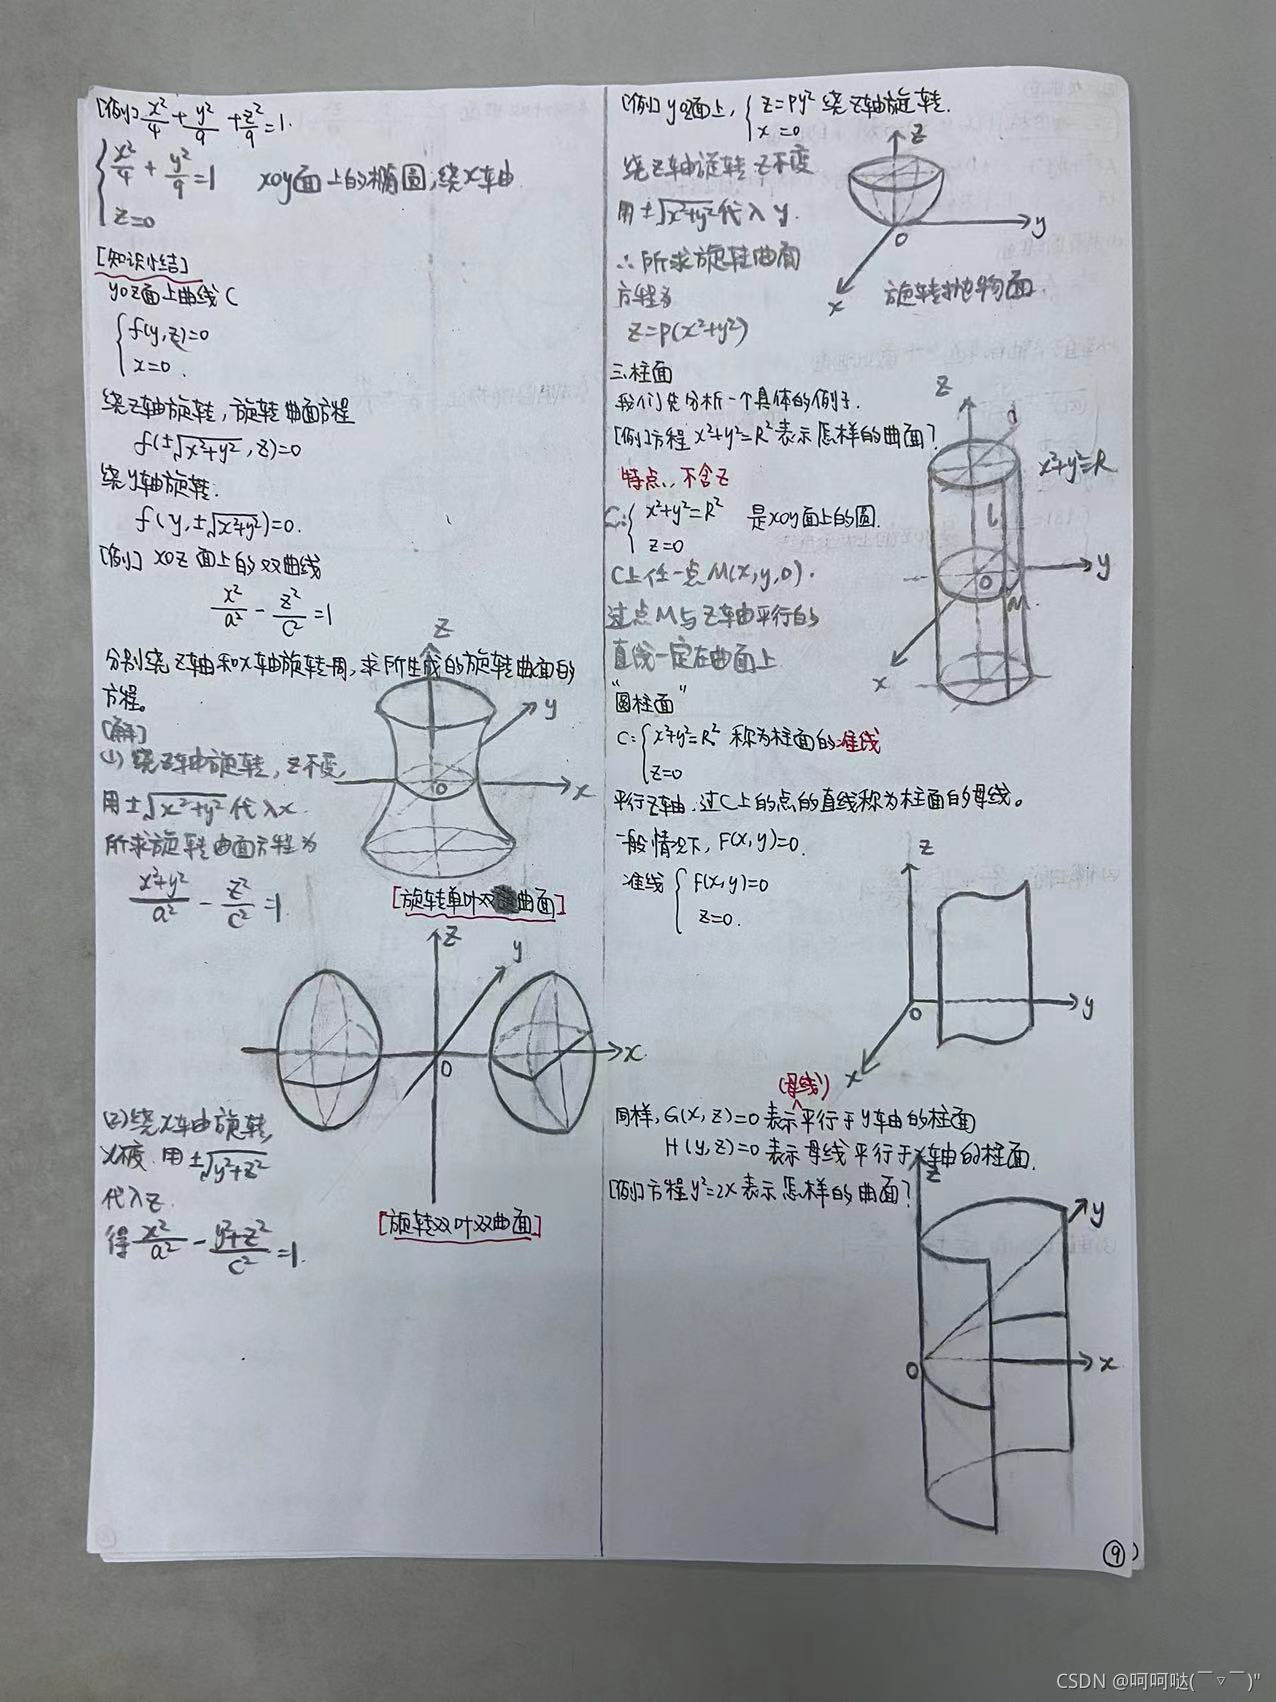 [例] x²/4 + y²/9 + z²/9 = 1.
{ x²/4 + y²/9 = 1 xoy面上的椭圆,绕x车由
z=0
[知识小结]
yoz面上曲线C
{ f(y,z)=0
x=0.
绕z轴旋转,旋转曲面方程
f(±√x²+y², z)=0
绕y轴旋转.
f(y,±√x²+y²)=0.
[例] xoz面上的双曲线
x²/a² - z²/c² = 1
分别绕z轴和x轴旋转一周,求所生成的旋转曲面的
方程。
[解]
(1) 绕z轴旋转,z不变,
用±√x²+y²代入x.
所求旋转曲面方程为
x²+y²/a² - z²/c² = 1
z
y
x
o
[旋转单叶双曲面]
z
y
x
o
(2)绕x轴旋转,
用±√y²+z²
代入z.
得 x²/a² - y²+z²/c² = 1.
[旋转双叶双曲面]
[例] yoz面上, { z=py² 绕z轴旋转.
x=0
绕z轴旋转z不变
用±√x²+y²代入y.
∴所求旋转曲面
方程为
z=p(x²+y²)
z
y
o
x
旋转抛物面
三.柱面
我们先分析一个具体的例子.
[例]方程x²+y²=R²表示怎样的曲面?
特点:不含z
C: { x²+y²=R² 是xoy面上的圆.
z=0
C上任一点M(x,y,0).
过点M与z轴平行的
直线一定在曲面上
"圆柱面"
z
x²+y²=R
l
y
o
M
x
C: { x²+y²=R² 称为柱面的准线
z=0
平行z轴.过C上的点的直线称为柱面的母线。
一般情况下,F(x,y)=0.
准线 { F(x,y)=0
z=0.
z
o
y
x
(母线)
同样,G(x,z)=0表示平行于y轴的柱面
H(y,z)=0表示母线平行于x轴的柱面.
[例]方程y²=2x表示怎样的曲面?
z
y
o
x
⑨
CSDN @呵呵哒(￣▽￣)"